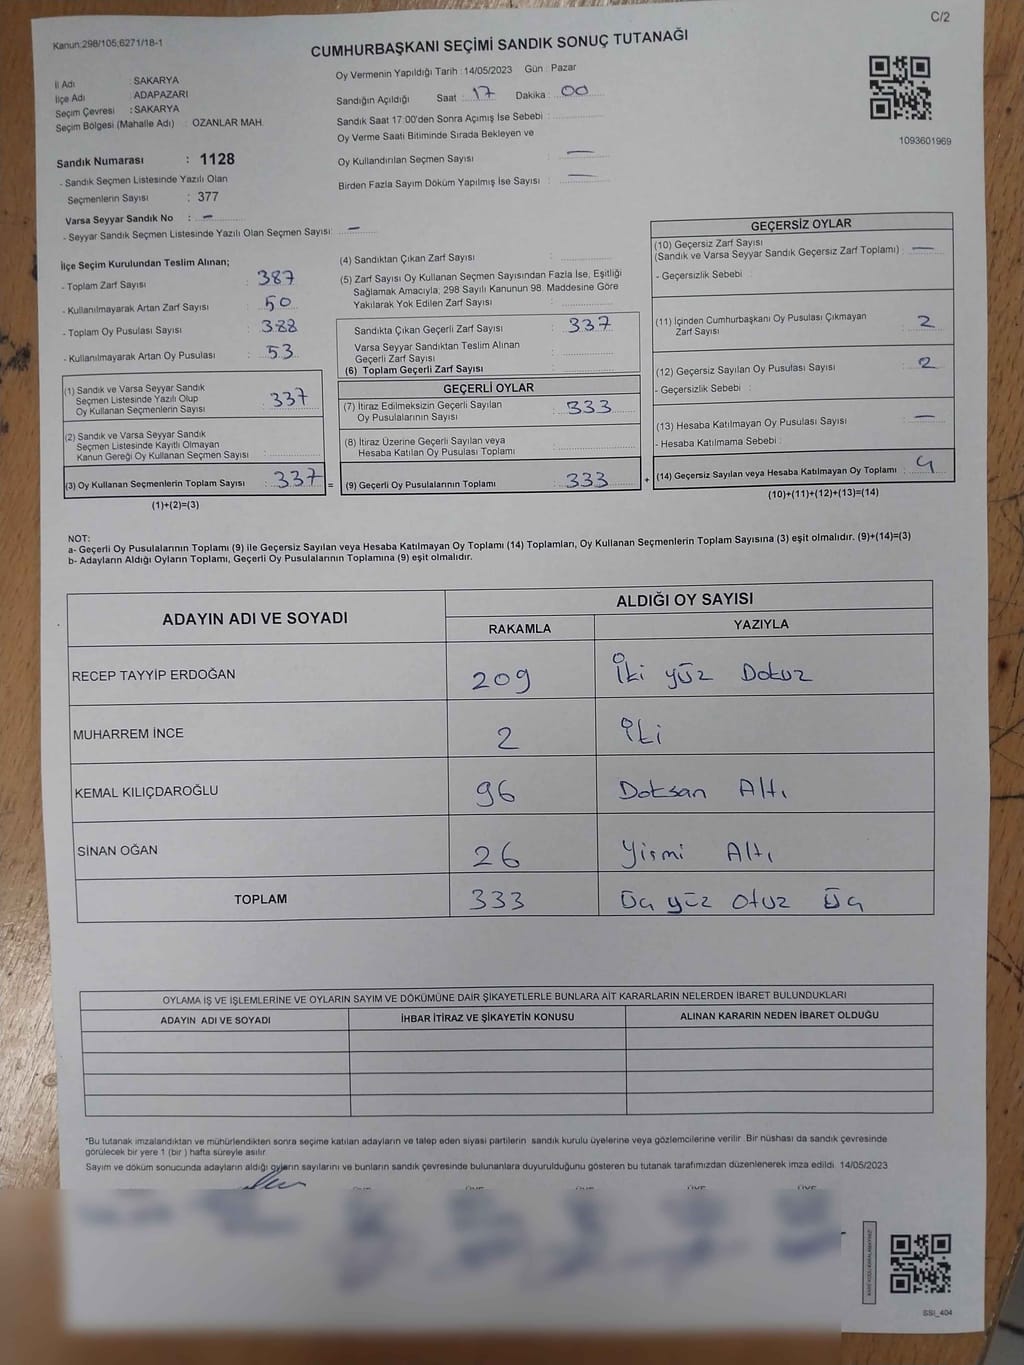 C/2
Kanun:298/105;6271/18-1
CUMHURBAŞKANI SEÇİMİ SANDIK SONUÇ TUTANAĞI
İl Adı : SAKARYA
İlçe Adı : ADAPAZARI
Seçim Çevresi : SAKARYA
Seçim Bölgesi (Mahalle Adı) : OZANLAR MAH.
Sandık Numarası : 1128
- Sandık Seçmen Listesinde Yazılı Olan
Seçmenlerin Sayısı : 377
Varsa Seyyar Sandık No : –
- Seyyar Sandık Seçmen Listesinde Yazılı Olan Seçmen Sayısı: –
Oy Vermenin Yapıldığı Tarih : 14/05/2023 Gün : Pazar
Sandığın Açıldığı Saat : 17 Dakika : 00
Sandık Saat 17:00'den Sonra Açımış İse Sebebi :
Oy Verme Saati Bitiminde Sırada Bekleyen ve
Oy Kullandırılan Seçmen Sayısı : –
Birden Fazla Sayım Döküm Yapılmış İse Sayısı : –
1093601969
İlçe Seçim Kurulundan Teslim Alınan;
- Toplam Zarf Sayısı : 387
- Kullanılmayarak Artan Zarf Sayısı : 50
- Toplam Oy Pusulası Sayısı : 388
- Kullanılmayarak Artan Oy Pusulası : 53
(1) Sandık ve Varsa Seyyar Sandık
Seçmen Listesinde Yazılı Olup
Oy Kullanan Seçmenlerin Sayısı : 337
(2) Sandık ve Varsa Seyyar Sandık
Seçmen Listesinde Kayıtlı Olmayan
Kanun Gereği Oy Kullanan Seçmen Sayısı :
(3) Oy Kullanan Seçmenlerin Toplam Sayısı : 337 =
(1)+(2)=(3)
(4) Sandıktan Çıkan Zarf Sayısı :
(5) Zarf Sayısı Oy Kullanan Seçmen Sayısından Fazla İse, Eşitliği
Sağlamak Amacıyla, 298 Sayılı Kanunun 98. Maddesine Göre
Yakılarak Yok Edilen Zarf Sayısı :
Sandıkta Çıkan Geçerli Zarf Sayısı : 337
Varsa Seyyar Sandıktan Teslim Alınan
Geçerli Zarf Sayısı :
(6) Toplam Geçerli Zarf Sayısı :
GEÇERLİ OYLAR
(7) İtiraz Edilmeksizin Geçerli Sayılan
Oy Pusulalarının Sayısı : 333
(8) İtiraz Üzerine Geçerli Sayılan veya
Hesaba Katılan Oy Pusulası Toplamı :
(9) Geçerli Oy Pusulalarının Toplamı : 333 +
GEÇERSİZ OYLAR
(10) Geçersiz Zarf Sayısı
(Sandık ve Varsa Seyyar Sandık Geçersiz Zarf Toplamı) : –
- Geçersizlik Sebebi :
(11) İçinden Cumhurbaşkanı Oy Pusulası Çıkmayan
Zarf Sayısı : 2
(12) Geçersiz Sayılan Oy Pusulası Sayısı : 2
- Geçersizlik Sebebi :
(13) Hesaba Katılmayan Oy Pusulası Sayısı : –
- Hesaba Katılmama Sebebi :
(14) Geçersiz Sayılan veya Hesaba Katılmayan Oy Toplamı : 4
(10)+(11)+(12)+(13)=(14)
NOT:
a- Geçerli Oy Pusulalarının Toplamı (9) ile Geçersiz Sayılan veya Hesaba Katılmayan Oy Toplamı (14) Toplamları, Oy Kullanan Seçmenlerin Toplam Sayısına (3) eşit olmalıdır. (9)+(14)=(3)
b- Adayların Aldığı Oyların Toplamı, Geçerli Oy Pusulalarının Toplamına (9) eşit olmalıdır.
ADAYIN ADI VE SOYADI ALDIĞI OY SAYISI
RAKAMLA YAZIYLA
RECEP TAYYİP ERDOĞAN 209 İki yüz Dokuz
MUHARREM İNCE 2 İki
KEMAL KILIÇDAROĞLU 96 Doksan Altı
SİNAN OĞAN 26 Yirmi Altı
TOPLAM 333 Üç yüz Otuz Üç
OYLAMA İŞ VE İŞLEMLERİNE VE OYLARIN SAYIM VE DÖKÜMÜNE DAİR ŞİKAYETLERLE BUNLARA AİT KARARLARIN NELERDEN İBARET BULUNDUKLARI
ADAYIN ADI VE SOYADI İHBAR İTİRAZ VE ŞİKAYETİN KONUSU ALINAN KARARIN NEDEN İBARET OLDUĞU
*Bu tutanak imzalandıktan ve mühürlendikten sonra seçime katılan adayların ve talep eden siyasi partilerin sandık kurulu üyelerine veya gözlemcilerine verilir. Bir nüshası da sandık çevresinde
görülecek bir yere 1 (bir ) hafta süreyle asılır.
Sayım ve döküm sonucunda adayların aldığı oyların sayılarını ve bunların sandık çevresinde bulunanlara duyurulduğunu gösteren bu tutanak tarafımızdan düzenlenerek imza edildi. 14/05/2023
SSI_404